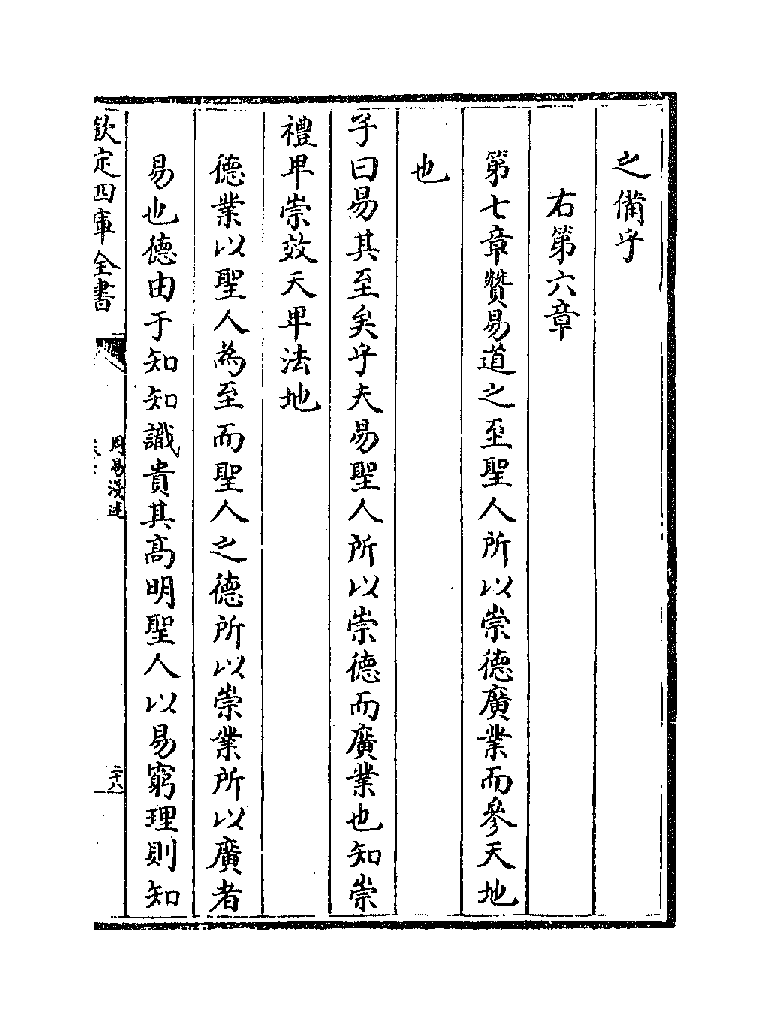 之備乎
右第六章
第七章贊易道之至聖人所以崇德廣業而參天地
也
子曰易其至矣乎夫易聖人所以崇德而廣業也知崇
禮卑崇效天卑法地
德業以聖人為至而聖人之德所以崇業所以廣者
易也德由于知知識貴其高明聖人以易窮理則知
欽定四庫全書
周易淺述
二十八